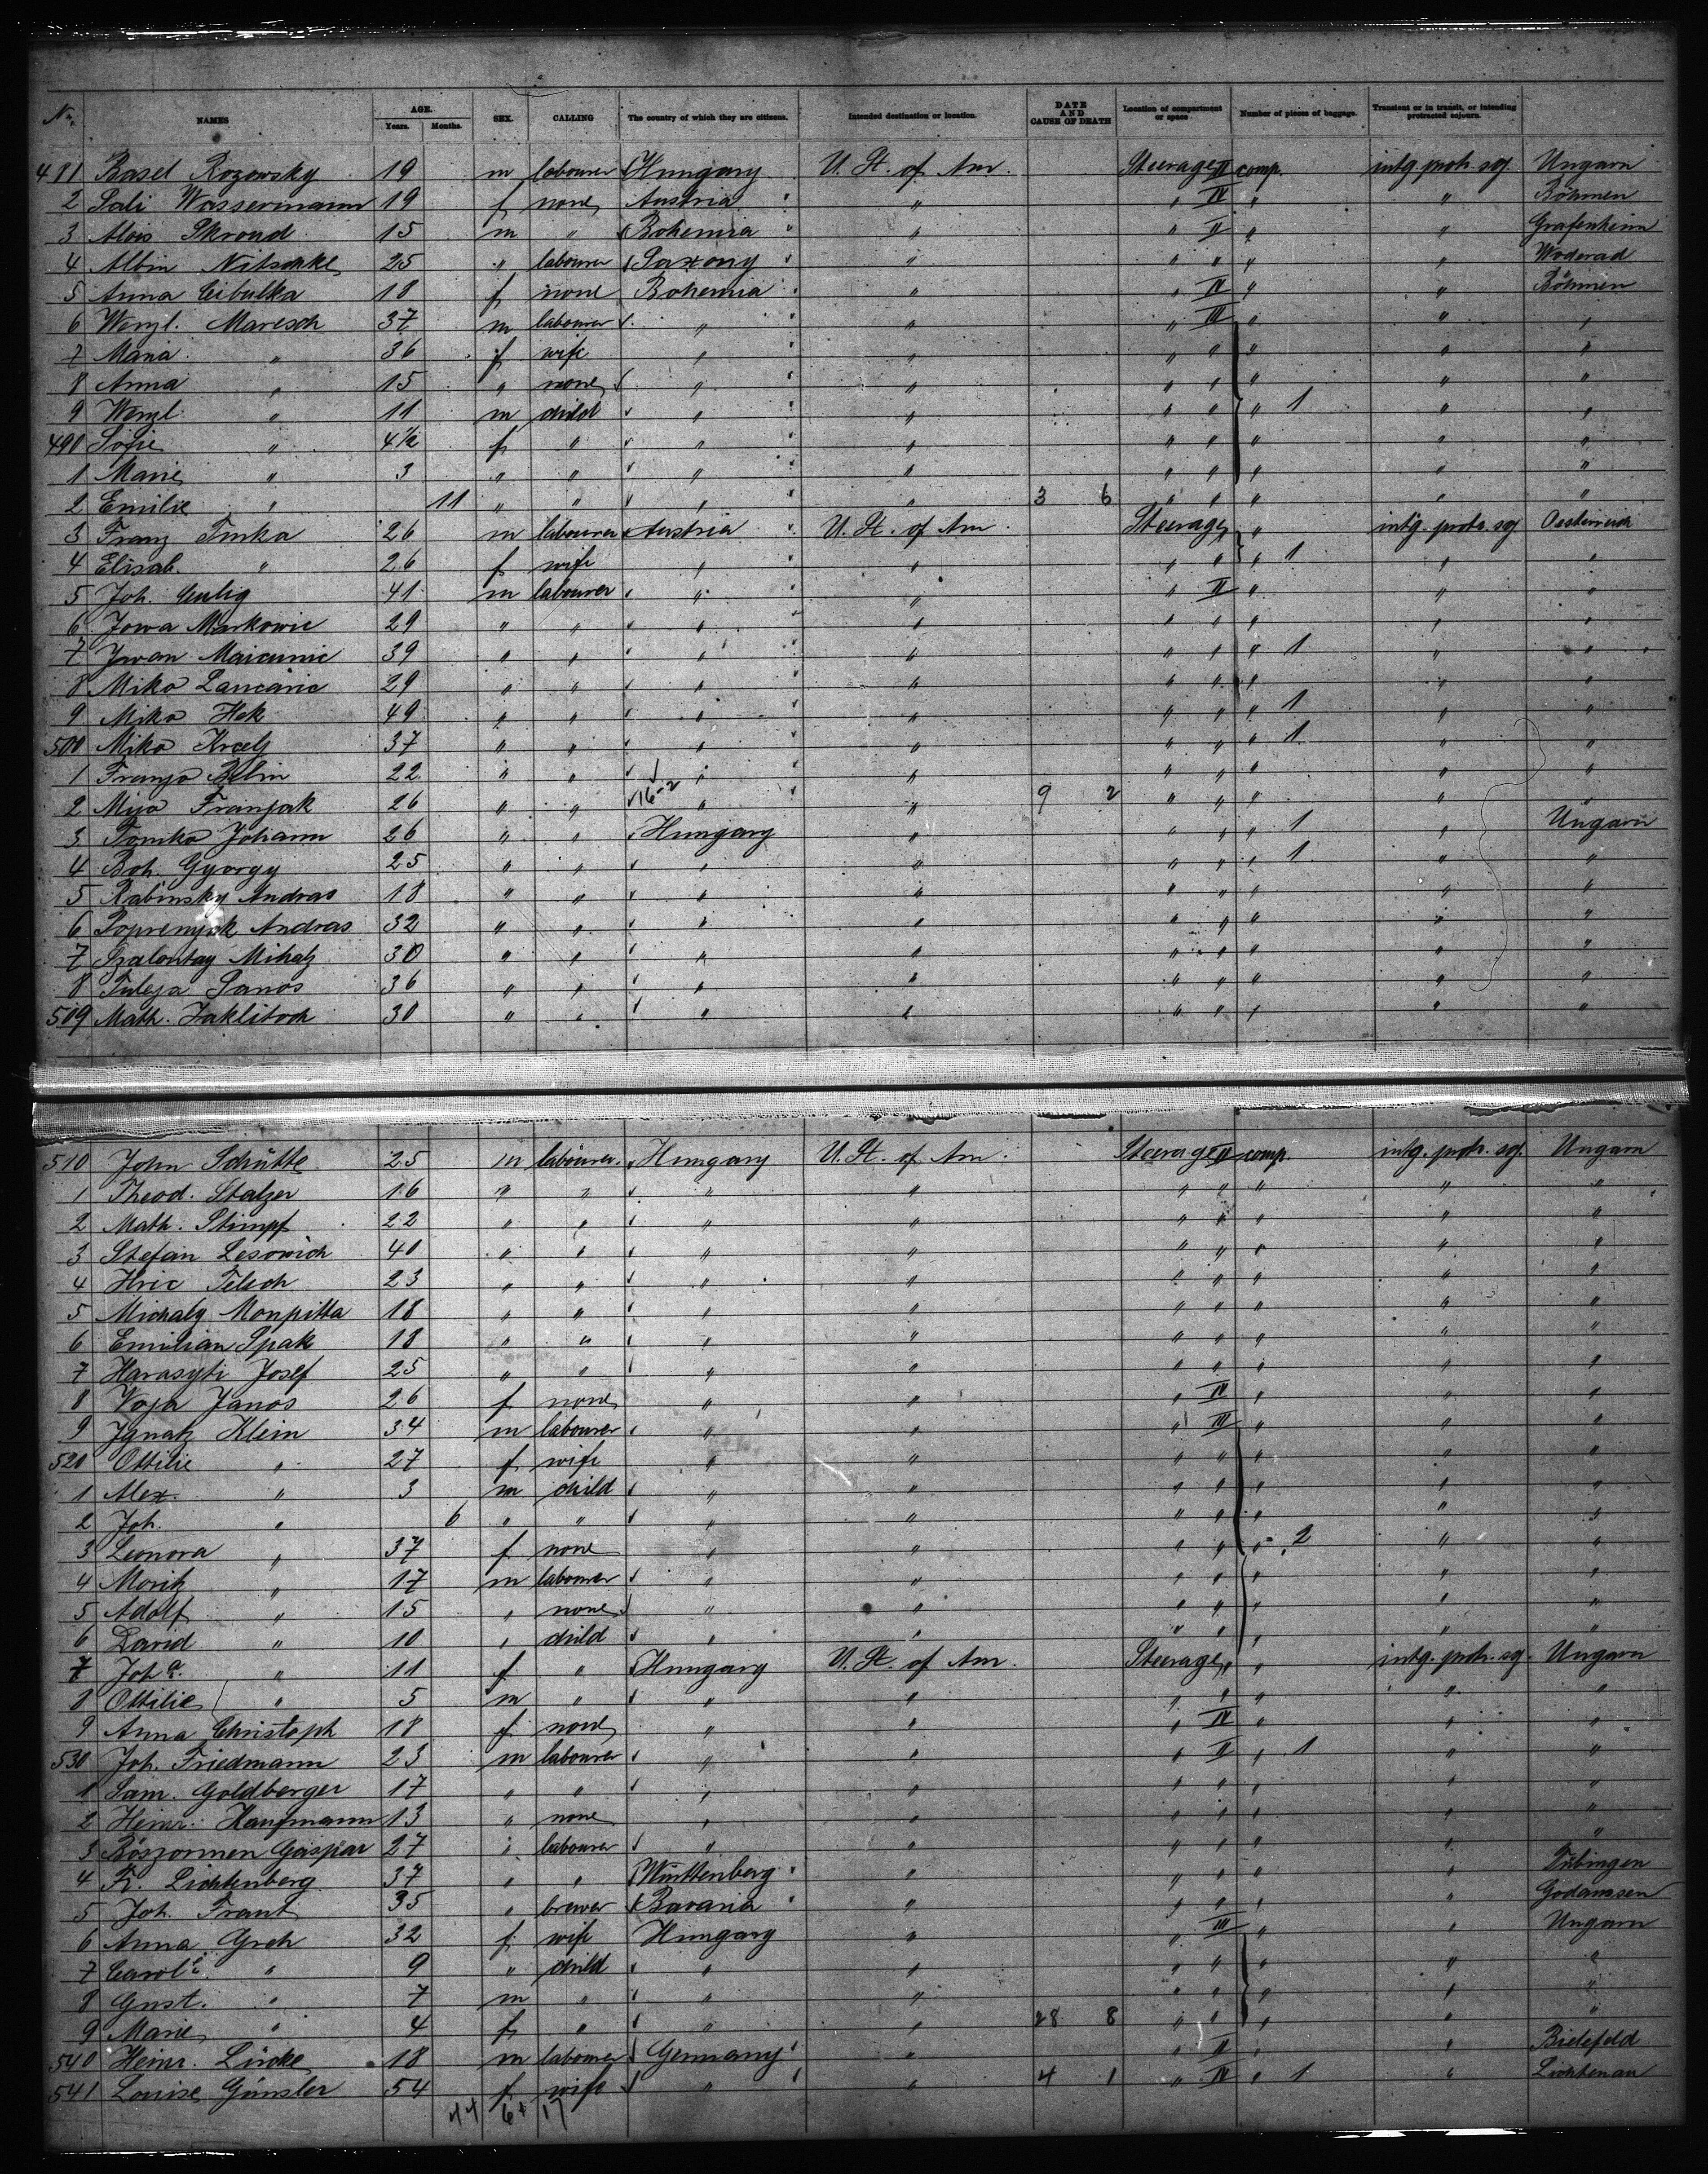 No. NAMES AGE. Years. Months. SEX. CALLING The country of which they are citizens. Intended destination or location. DATE AND CAUSE OF DEATH Location of compartment or space Number of pieces of baggage. Transient or in transit, or intending protracted sojourn.
481 Basel Rozowsky 19 m labourer Hungary U. St. of Am. Steerage II comp. intg. protr. soj. Ungarn
2 Sali Wassermann 19 f none Austria " " IV " " Böhmen
3 Alois Skroud 15 m " Bohemia " " II " " Grafenheim
4 Albin Nitschke 25 " labourer Saxony " " " " " Woderad
5 Anna Cibulka 18 f none Bohemia " " IV " " Böhmen
6 Wenzl. Maresch 37 m labourer " " " III " " "
7 Maria " 36 f wife " " " " " " "
8 Anna " 15 " none " " " " " " "
9 Wenzl " 11 m child " " " " " 1 " "
490 Sofie " 4½ f " " " " " " " "
1 Marie " 3 " " " " " " " " "
2 Emilie " 11 " " " " 3 6 " " " " "
3 Franz Trnka 26 m labourer Austria U. St. of Am. Steerage " " intg. protr. soj Oesterreich
4 Elisab. " 26 f wife " " " " " 1 " "
5 Joh. Culig 41 m labourer " " " II " " "
6 Jowa Markowic 29 " " " " " " " " "
7 Jwan Maicunic 39 " " " " " " " 1 " "
8 Miko Lancaric 29 " " " " " " " " "
9 Mika Hek 49 " " " " " " " 1 " "
500 Miko Kralj 37 " " " " " " " 1 " "
1 Franjo Belin 22 " " " " " " " " "
2 Mijo Franjak 26 " " 16-2 " " 9 2 " " " " "
3 Tomko Johann 26 " " Hungary " " " " 1 " Ungarn
4 Boh. Gyorgy 25 " " " " " " " 1 " "
5 Rabinsky Andras 18 " " " " " " " " "
6 Poprenyak Andras 32 " " " " " " " " "
7 Szalontay Mihalz 30 " " " " " " " " "
8 Tuleja Janos 36 " " " " " " " " "
509 Math. Jaklitsch 30 " " " " " " " " "
510 John Schütte 25 m labourer Hungary U. St. of Am. Steerage II comp. intg. protr. soj. Ungarn
1 Theod. Stalzer 16 " " " " " " " " "
2 Math. Stimpf 22 " " " " " " " " "
3 Stefan Lesowich 40 " " " " " " " " "
4 Hric Telech 23 " " " " " " " " "
5 Michaly Monpitta 18 " " " " " " " " "
6 Emilian Spak 18 " " " " " " " " "
7 Harasyti Josef 25 " " " " " " " " "
8 Voja Janos 26 f none " " " IV " " "
9 Jgnatz Klein 34 m labourer " " " III " " "
520 Ottilie " 27 f wife " " " " " " "
1 Alex. " 3 m child " " " " " " "
2 Joh. " 6 " " " " " " " " "
3 Leonora " 37 f none " " " " " 2 " "
4 Moritz " 17 m labourer " " " " " " "
5 Adolf " 15 " none " " " " " " "
6 David " 10 " child " " " " " " "
7 Joh.a " 11 f " Hungary U. St. of Am. Steerage " " intg. protr. soj. Ungarn
8 Ottilie " 5 m " " " " " " " "
9 Anna Christoph 18 f none " " " IV " " "
530 Joh. Friedmann 23 m labourer " " " II " 1 " "
1 Sam. Goldberger 17 " " " " " " " " "
2 Heinr. Kaufmann 13 " none " " " " " " "
3 Böszonnen Gáspár 27 " labourer " " " " " " "
4 Fr. Lichtenberg 37 " " Württenberg " " " " " Tübingen
5 Joh. Frant 35 " brewer Bavaria " " " " " Godamssen
6 Anna Greh 32 f wife Hungary " " III " " Ungarn
7 Carol.e " 9 " child " " " " " " "
8 Gust. " 7 m " " " " " " " "
9 Marie " 4 f " " " 28 8 " " " "
540 Heinr. Lücke 18 m labourer Germany " " II " " Bielefeld
541 Louise Günsler 54 f wife " " 4 1 " IV " 1 " Lichtenau
44 6+ 17